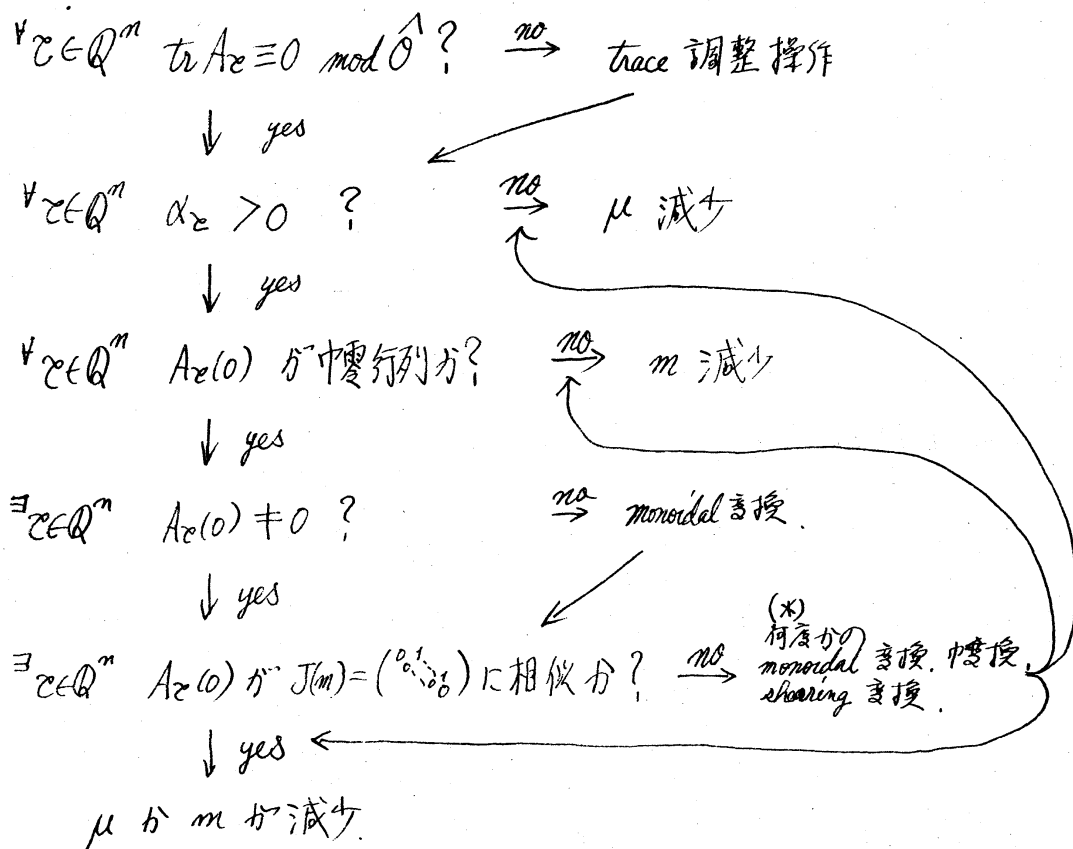 ∀τ∈Qⁿ tr A_τ ≡ 0 mod Ô ? no→ trace 調整操作
↓ yes
∀τ∈Qⁿ α_τ > 0 ? no→ μ 減少
↓ yes
∀τ∈Qⁿ A_τ(0) が巾零行列か? no→ m 減少
↓ yes
∃τ∈Qⁿ A_τ(0) ≠ 0 ? no→ monoidal 変換.
↓ yes
(*)
何度かの
∃τ∈Qⁿ A_τ(0) が J(m) = (0 1 0 ⋱ 1 0 0) に相似か? no→ monoidal 変換. 巾変換.
shearing 変換.
↓ yes
μ か m が減少.